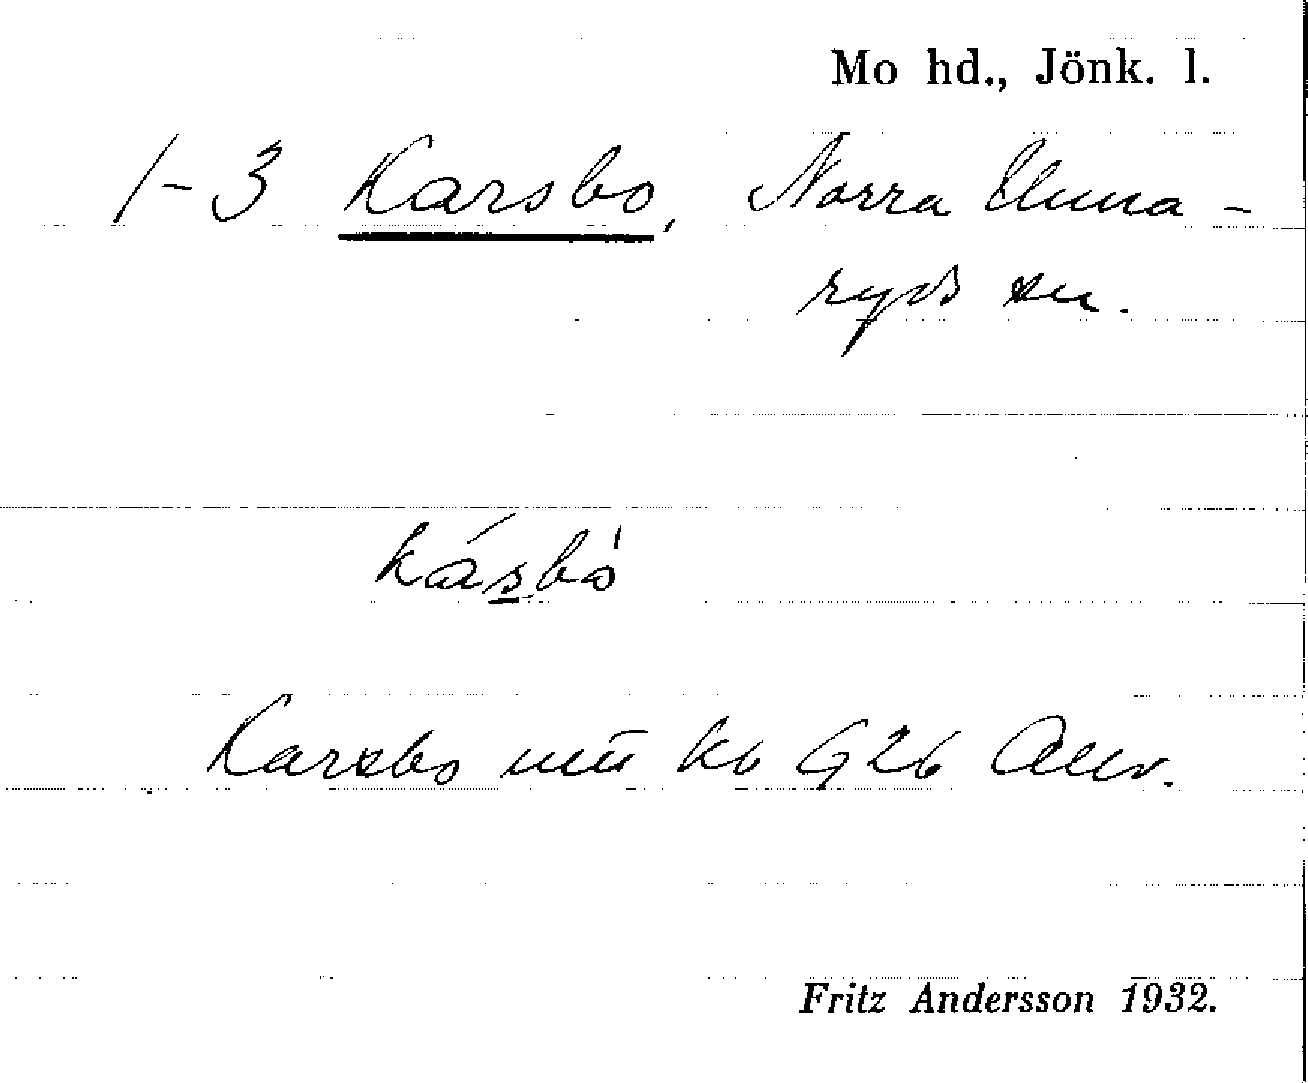 Mo hd., Jönk. l.
1-3 Karsbo, Norra Unna-
ryds sn.
kásbò
Karsbo
Fritz Andersson 1932.